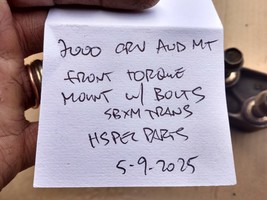 2000 CRV AWD MT
FRONT TORQUE
MOUNT W/ BOLTS
SBXM TRANS
HSPEC PARTS
5-9-2025